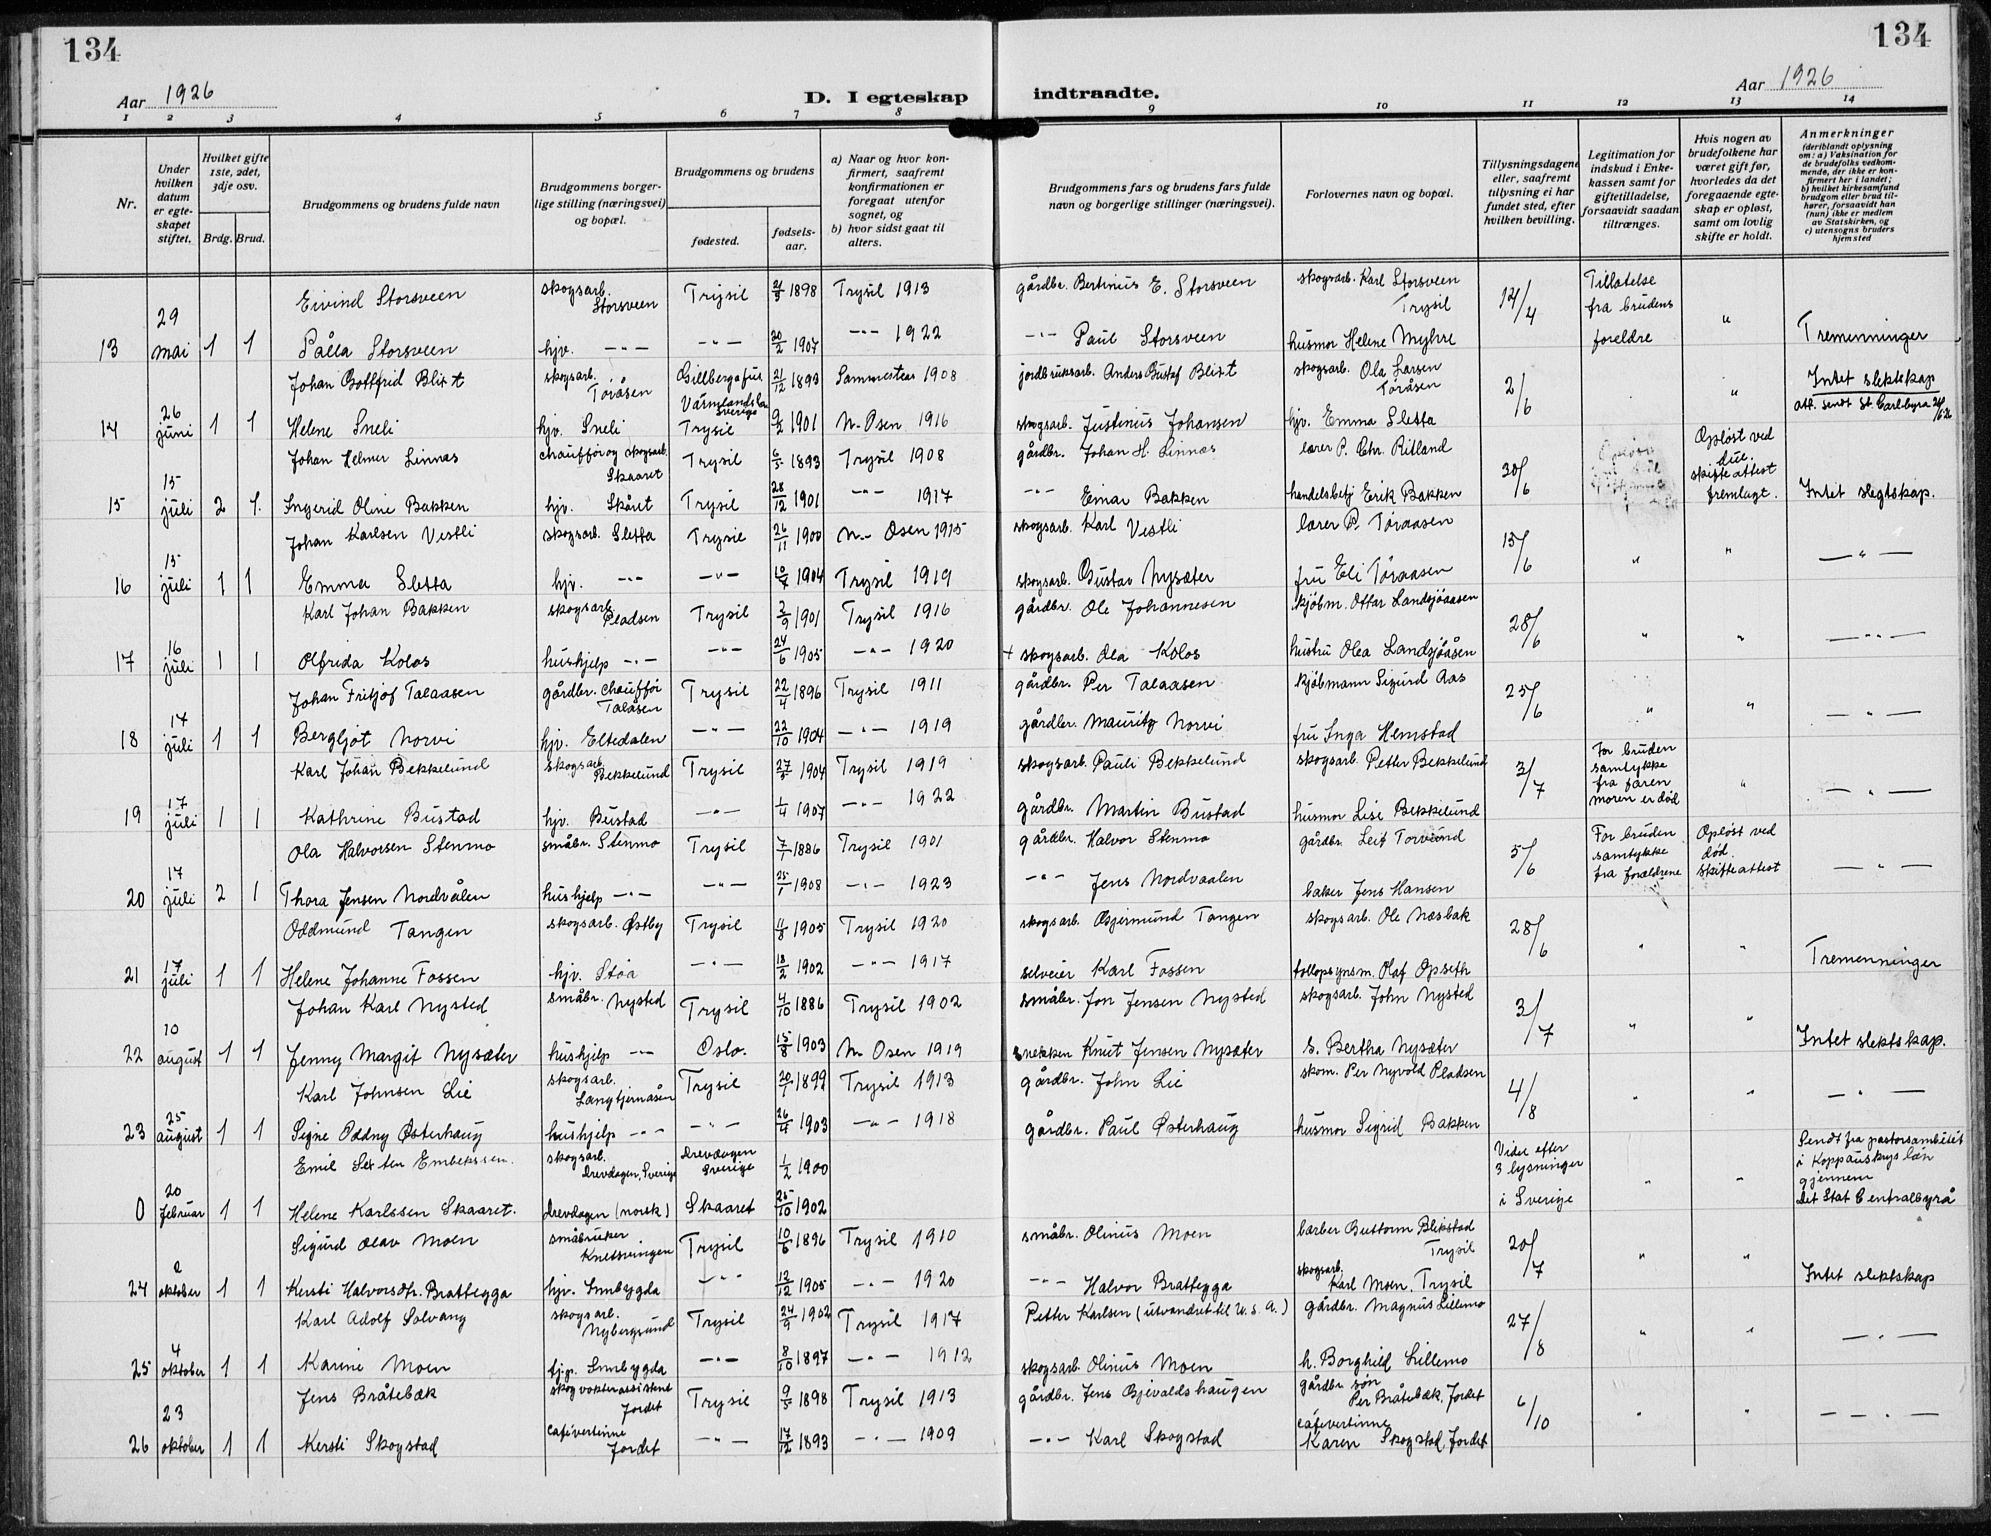 134
134
Aar 1926
D. I egteskap
indtraadte.
Aar 1926
1 2 3 4 5 6 7 8 9 10 11 12 13 14
Nr.
Under hvilken datum er egte-skapet stiftet.
Hvilket gifte 1ste, 2det, 3dje osv.
Brdg. Brud.
Brudgommens og brudens fulde navn
Brudgommens borger-lige stilling (næringsvei) og bopæl.
Brudgommens og brudens
fødested.
fødsels-aar.
a) Naar og hvor kon-firmert, saafremt konfirmationen er foregaat utenfor sognet, og
b) hvor sidst gaat til alters.
Brudgommens fars og brudens fars fulde navn og borgerlige stillinger (næringsvei).
Forlovernes navn og bopæl.
Tillysningsdagene eller, saafremt tillysning ei har fundet sted, efter hvilken bevilling.
Legitimation for indskud i Enke-kassen samt for giftetilladelse, forsaavidt saadan tiltrænges.
Hvis nogen av brudefolkene har været gift før, hvorledes da det foregaaende egte-skap er opløst, samt om lovlig skifte er holdt.
Anmerkninger (deriblandt oplysning om: a) Vaksination for de brudefolks vedkom-mende, der ikke er kon-firmert her i landet; b) hvilket kirkesamfund brudgom eller brud til-hører, forsaavidt han (hun) ikke er medlem av Statskirken, og c) utensogns bruders hjemsted
Eivind Storsveen skogsarb. Storsveen Trysil 21/5 1898 Trysil 1913 gårdbr. Bertinius E. Storsveen skogsarb. Karl Storsveen Trysil 12/4 Tillatelse fra brudens foreldre "
13 29 mai 1 1 Pålla Storsveen hjv. -"- -"- 20/2 1907 -"- 1922 -"- Paul Storsveen husmor Helene Myhre Tremenninger
Johan Gottfrid Blixt skogsarb. Töråsen Gillberga Värmlands Sverige 21/12 1893 1908 jordbruksarb. Anders Gustaf Blixt skogsarb. Ola Larsen Töråsen 2/6 " Intet slektskap
14 26 juni 1 1 Helene Sneli hjv. Sneli Trysil 1901 N. Osen 1916 skogsarb. Justinius Johansen hjv. Emma Sletta
Johan Helmer Linnæs chauffør og skogsarb. Skaaret Trysil 6/5 1893 Trysil 1908 gårdbr. Johan H. Linnæs lærer P. Chr. Ritland 30/6 Opløst ved skifteattest fremlagt.
15 15 juli 2 1. Ingerid Oline Bakken hjv. Skåret Trysil 28/12 1901 -"- 1917 -"- Einar Bakken handelsbetj Erik Bakken Intet slegtskap.
Johan Karlsen Vestli skogsarb. Sletta Trysil 26/11 1900 N. Osen 1915 skogsarb. Karl Vestli lærer P. Töraasen 15/6 " " -"-
16 15 juli 1 1 Emma Sletta hjv. -"- -"- 10/7 1904 Trysil 1919 skogsarb. Gustav Nysæter fru Eli Töraasen
Karl Johan Bakken skogsarb. Pladsen Trysil 2/9 1901 Trysil 1916 gårdbr. Ole Johannesen kjøbm. Ottar Landsjöaasen 28/6 " " -"-
17 16 juli 1 1 Olfrida Kolos hushjelp -"- -"- 24/6 1905 -"- 1920 + skogsarb. Ola Kolos hustru Olea Landsjöåsen
Johan Fritjof Talaasen gårdbr. chauffør Talåsen Trysil 22/4 1896 Trysil 1911 gårdbr. Per Talaasen kjøbmann Sigurd Aas 25/6 " " -"-
18 17 juli 1 1 Bergljot Norvi hjv. Eltedalen -"- 22/10 1904 -"- 1919 gårdbr. Mauritz Norvi fru Inga Hemstad
Karl Johan Bekkelund skogsarb. Bekkelund Trysil 1904 Trysil 1919 skogsarb. Pauli Bekkelund skogsarb. Petter Bekkelund 3/7 For bruden samtykke fra faren moren er død " -"-
19 17 juli 1 1 Kathrine Bustad hjv. Bustad -"- 1/4 1907 -"- 1922 gårdbr. Martin Bustad husmor Lise Bekkelund
Ola Halvorsen Stenmo småbr. Stenmo Trysil 7/1 1886 Trysil 1901 gårdbr. Halvor Stenmo gårdbr. Leif Torvund 5/6 For bruden samtykke fra forældrene Opløst ved død. skifteattest -"-
20 17 juli 2 1 Thora Jensen Nordvålen hushjelp -"- -"- 25/1 1908 -"- 1923 -"- Jens Nordvaalen baker Jens Hansen
Oddmund Tangen skogsarb. Østby Trysil 11/8 1905 Trysil 1920 skogsarb. Gjermund Tangen skogsarb. Ole Næsbak 28/6 " "
21 17 juli 1 1 Helene Johanne Fossen hjv. Støa -"- 18/2 1902 -"- 1917 selveier Karl Fossen tollopsynsm. Olaf Opseth Tremenninger
Johan Karl Nysted småbr. Nysted Trysil 4/10 1886 Trysil 1902 småbr. Jon Jensen Nysted skogsarb. John Nysted 3/7 " "
22 10 august 1 1 Jenny Margit Nysæter hushjelp -"- Oslo. 15/8 1903 N. Osen 1919 Knut Jensen Nysæter Bertha Nysæter Intet slektskap.
Karl Johnsen Lie skogsarb. Langtjernåsen Trysil 20/1 1899 Trysil 1913 gårdbr. John Lie skom. Per Nyvold Pladsen 4/8 " " -"-
23 25 august 1 1 Signe Oddny Østerhaug hushjelp -"- -"- 26/4 1903 -"- 1918 gårdbr. Paul Østerhaug husmor Sigrid Bakken
Emil Embekssen. skogsarb. Drevdagen, Sverige Drevdagen Sverige 1/2 1900 Viet efter 3 lysninger i Sverige " " Sendt fra pastorsambetet i län gjennem det Stat Centralbyrå
0 20 februar 1 1 Helene Karlssen Skaaret. Drevdagen (norsk) Skaaret 25/10 1902
Sigurd Olav Moen småbruker Knettsvingen Trysil 10/6 1896 Trysil 1910 småbr. Olinus Moen barber Guttorm Blikstad Trysil 20/7 " "
24 2 oktober 1 1 Kersti Halvorsdtr. Brattegga hjv. Innbygda -"- 12/12 1905 -"- 1920 -"- Halvor Brattegga skogsarb. Karl Moen, Trysil Intet slektskap
Karl Adolf Solvang skogsarb. Nybergsund Trysil 24/9 1902 Trysil 1917 Petter Karlsen (utvandret til U.S.A.) gårdbr. Magnus Lillemo 27/8 " " -"-
25 4 oktober 1 1 Karine Moen Innbygda -"- 8/10 1897 -"- 1912 skogsarb. Olinus Moen h. Borghild Lillemo
Jens Bråtebæk skogvokterassistent Jordet Trysil 9/5 1898 Trysil 1913 gårdbr. Jens Gjevaldshaugen gårdbr. søn Per Bråtebæk, Jordet 6/10 " " -"-
26 23 oktober 1 1 Kersti Skogstad cafévertinne Jordet -"- 17/12 1893 -"- 1909 -"- Karl Skogstad cafévertinne Karen Skogstad, Jordet